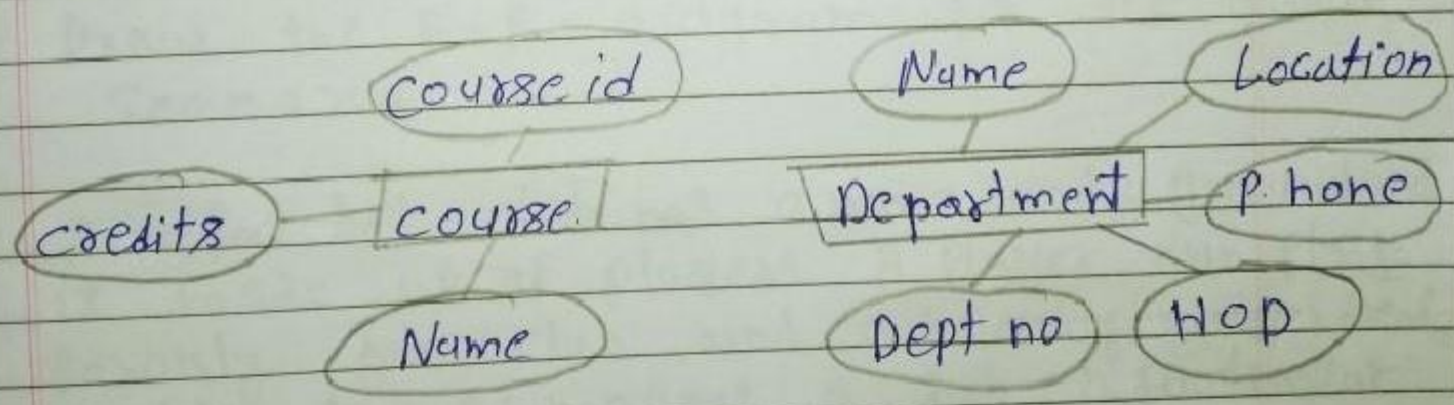 Course id Name Location
credits course. Department P.hone
Name Dept no HOD